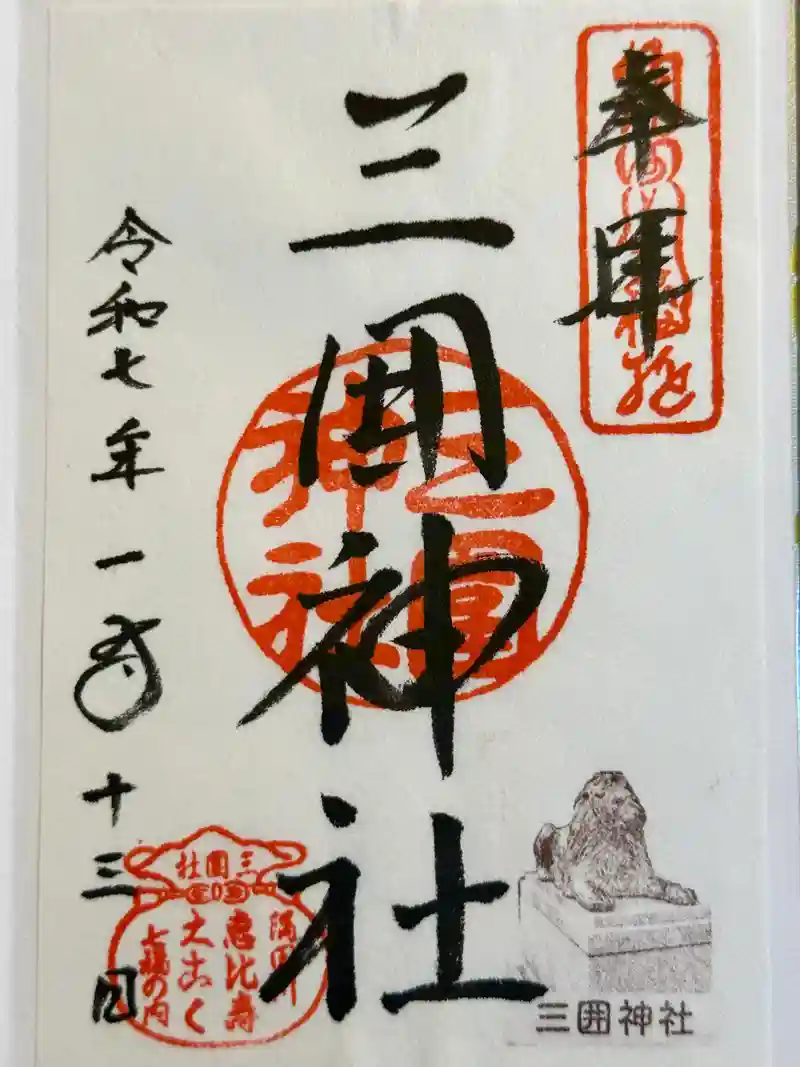 奉拝
三囲神社
三囲神社
令和七年一月十三日
三囲社
隅田川
恵比寿
大こく
七福の内
三囲神社